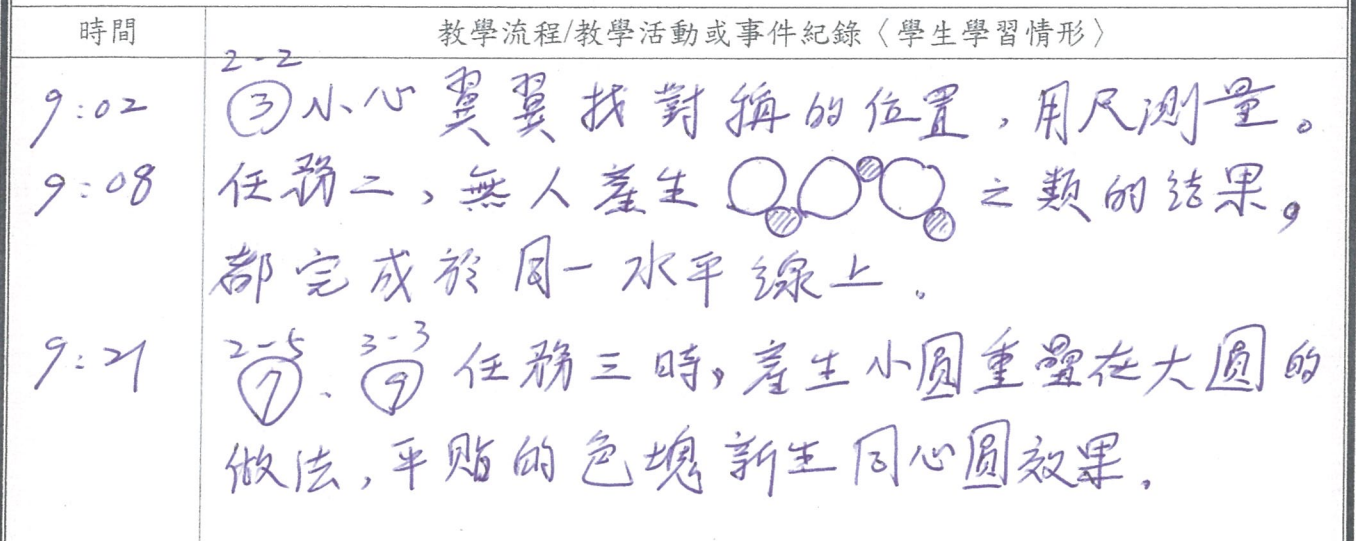 時間 教學流程/教學活動或事件紀錄〈學生學習情形〉
2-2
9:02 ③小心翼翼找對稱的位置，用尺測量。
9:08 任務二，無人產生 之類的結果，
都完成於同一水平線上。
2-5 3-3
9:21 ⑦、⑨任務三時，產生小圓重疊在大圓的
做法，平貼的色塊新生同心圓效果。